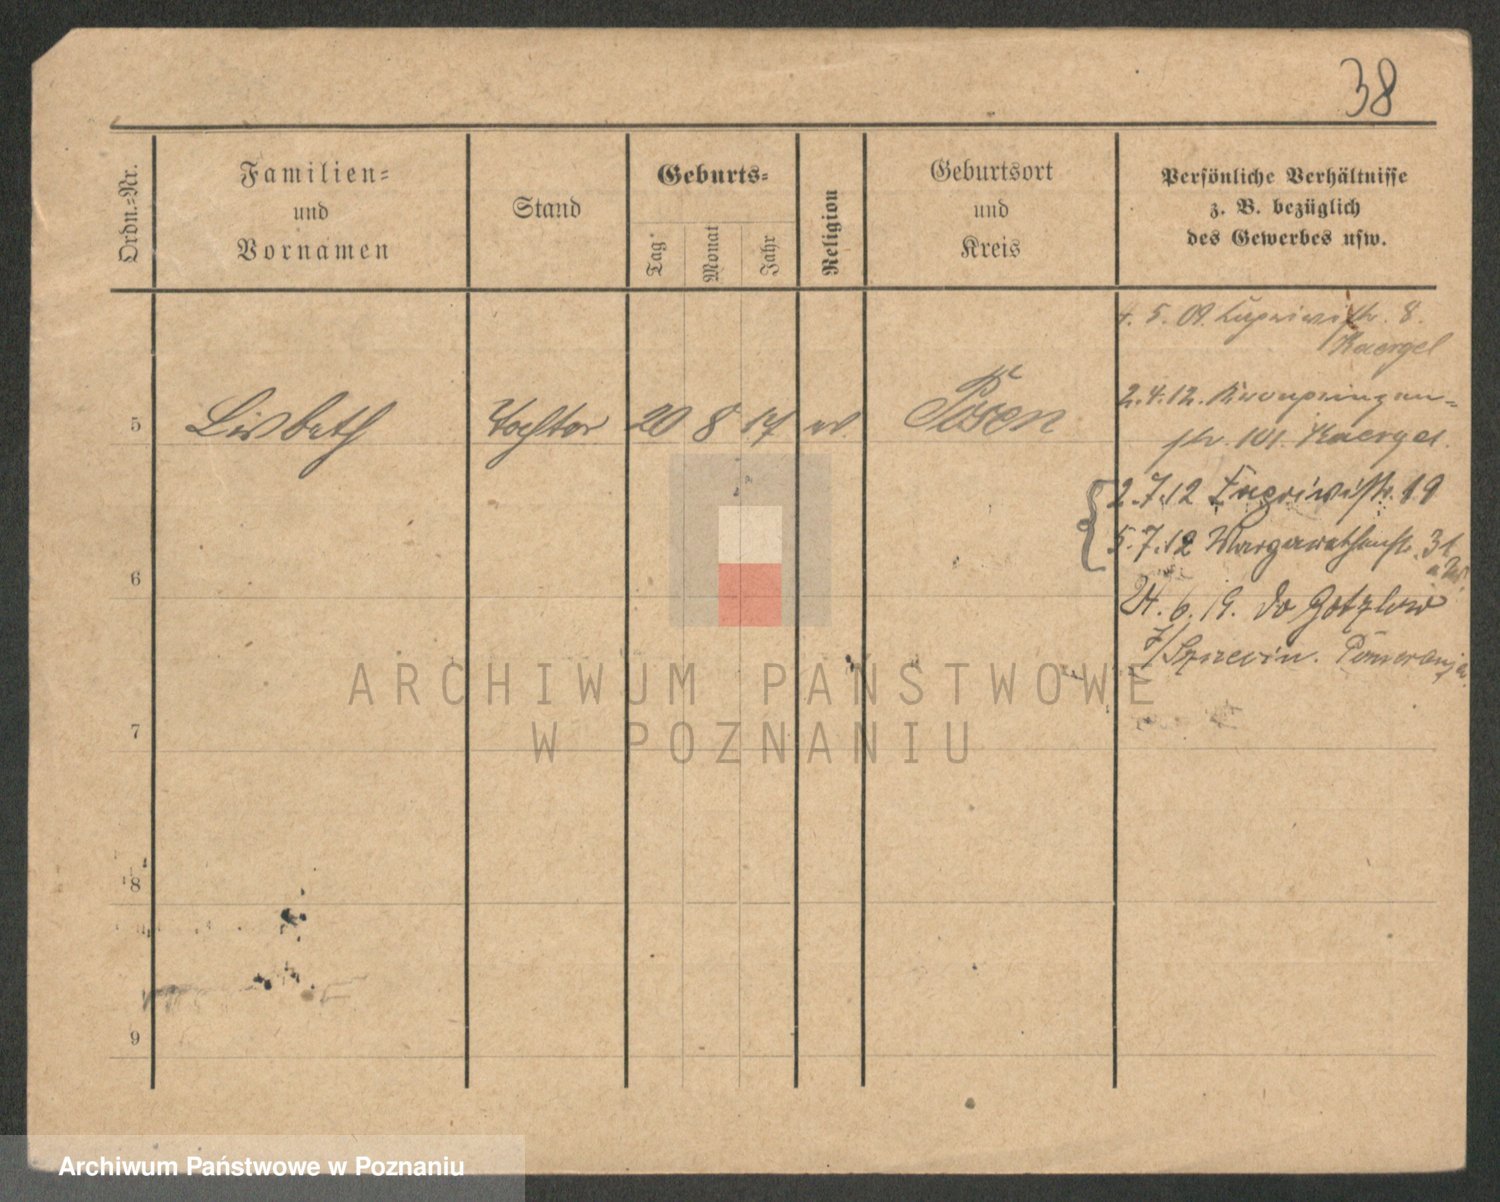 38
Ordn.-Nr.
Familien-
und
Vornamen
Stand
Geburts-
Tag
Monat
Jahr
Religion
Geburtsort
und
Kreis
Persönliche Verhältnisse
z. B. bezüglich
des Gewerbes usw.
4. 5. 09. 8.
Kaergel
2.4.12. Kronprinzen-
str. 101. Kaergel.
5 Lisbeth Tochter 20 8 17 ev. Posen
2.7.12 19
5.7.12 Margarethenstr. 31
6
24. 6. 19. do Gotzlow
Pomeranja
7
8
9
ARCHIWUM PAŃSTWOWE
W POZNANIU
Archiwum Państwowe w Poznaniu